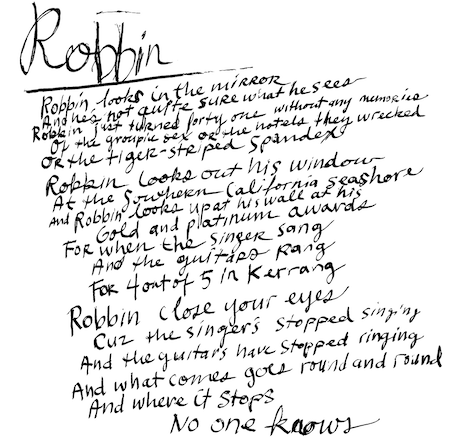 Robbin
Robbin looks in the mirror
And he's not quite sure what he sees
Robbin just turned forty one without any memories
Of the groupie sex or the hotels they wrecked
or the tiger-striped spandex
Robbin looks out his window
At the Southern California seashore
and Robbin looks up at his wall at his
Gold and platinum awards
For when the singer sang
And the guitars Rang
For 4 out of 5 in Kerrang
Robbin close your eyes
Cuz the singer's stopped singing
And the guitars have stopped ringing
And what comes goes round and round
And where it stops
No one knows